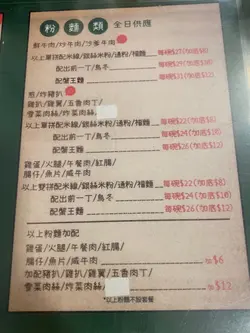 粉麵類 全日供應
鮮牛肉/炸牛肉/沙爹牛肉
以上單拼配米線/銀絲米粉/通粉/擢麵 每碗$27(加底$8)
配出前一丁/烏冬 每碗$29(加底$12)
配蟹王麵 每碗$31(加底$12)
煎/炸豬扒
雞扒/雞翼/五香肉丁/
雪菜肉絲/炸菜肉絲
以上單拼配米線/銀絲米粉/通粉/擢麵 每碗$24(加底$8)
配出前一丁/烏冬 每碗$26(加底$12)
配蟹王麵 每碗$28(加底$12)
雞蛋/火腿/午餐肉/紅腸/
腸仔/魚片/咸牛肉
以上雙拼配米線/銀絲米粉/通粉/擢麵 每碗$22(加底$8)
配出前一丁/烏冬 每碗$24(加底$12)
配蟹王麵 每碗$26(加底$12)
以上粉麵加配
雞蛋/火腿/午餐肉/紅腸/
腸仔/魚片/咸牛肉 加$6
加配豬扒/雞扒/雞翼/五香肉丁/
雪菜肉絲/炸菜肉絲 加$12
*以上粉麵不設套餐